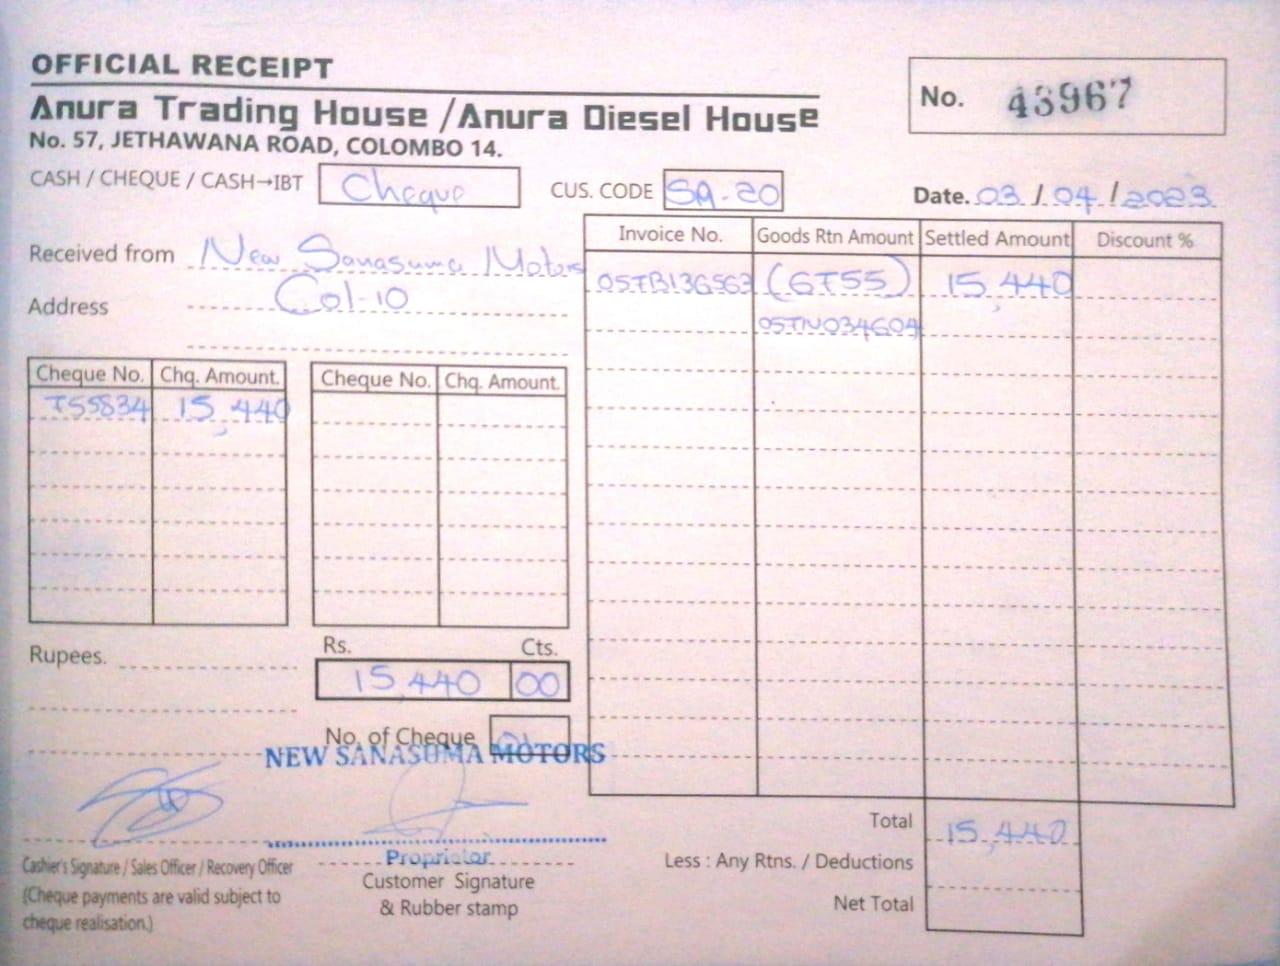 OFFICIAL RECEIPT
Anura Trading House / Anura Diesel House
No. 57, JETHAWANA ROAD, COLOMBO 14.
No. 43967
CASH / CHEQUE / CASH→IBT Cheque
CUS. CODE SA-20
Date. 03 / 04 / 2023
Received from New Sanasuma Motors
Address Col-10
Invoice No. Goods Rtn Amount Settled Amount Discount %
05TB136563 (6755) 15,440
05TN034604
Cheque No. Chq. Amount. Cheque No. Chq. Amount.
755834 15,440
Rupees.
Rs. Cts.
15,440 00
No. of Cheque
NEW SANASUMA MOTORS
Proprietor
Cashier's Signature / Sales Officer / Recovery Officer
(Cheque payments are valid subject to
cheque realisation.)
Customer Signature
& Rubber stamp
Total 15,440
Less : Any Rtns. / Deductions
Net Total